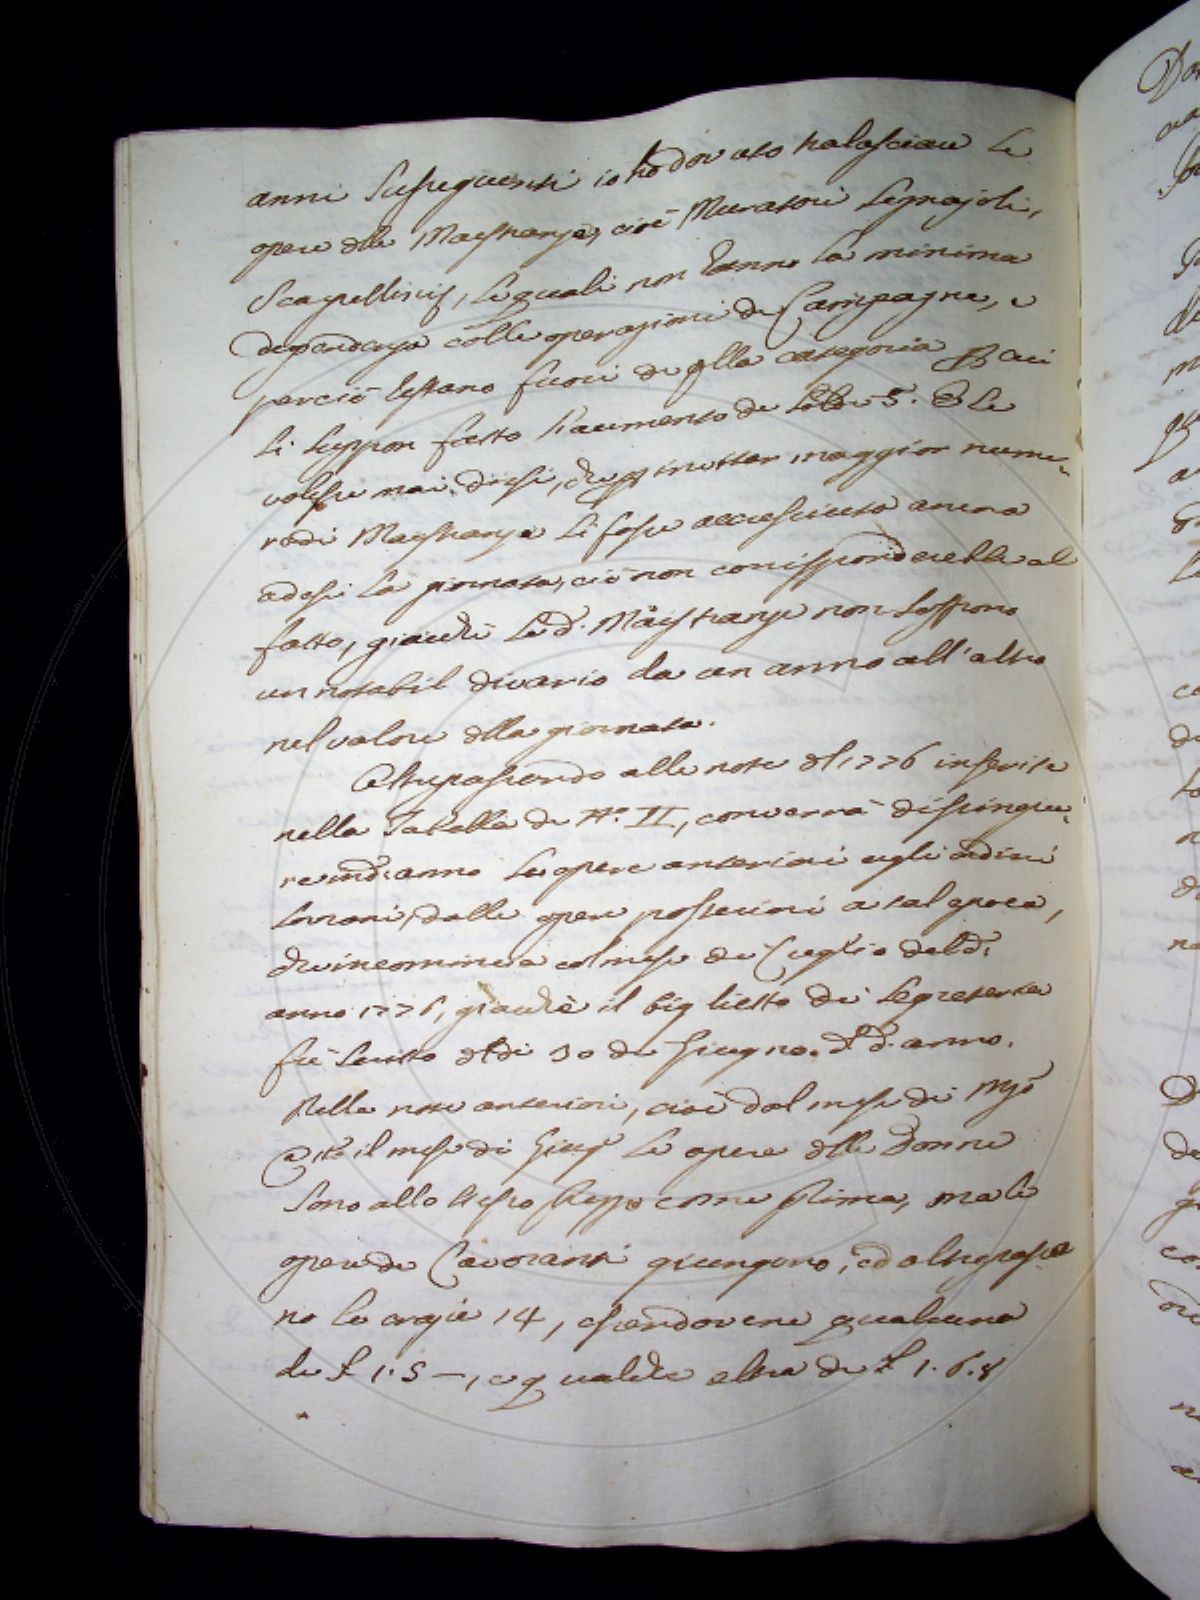 anni susseguenti io hò dovuto tralasciare le
opere dlle Maestranze, cioè Muratori Legnajoli,
Scarpellini &, le quali non hanno la minima
dependenza colle operazioni di Campagna, e
perciò restano fuori di qlla categoria p cui
si suppon fatto l'aumento di soldi 5. E se
volesse mai dirsi, che p inotter maggior nume-
ro di Maestranza si fosse accresciuta ancora
ad essi la giornata, ciò non corrisponderebbe al
fatto, giachè le d. Maestranze non soffrono
un notabil divario da un anno all'altro
nel valore dlla giornata.
Oltrepassando alle note dl 1776 inserite
nella Tabella di N.o II, converrà distingue-
re in d. anno le opere anteriori agli ordini
sovrani, dalle opere posteriori a tal epoca,
che incomincia col mese di Luglio del d.
anno 1776, giachè il biglietto di Segreteria
fù scritto dl dì 30 di Giugno. dl d. anno.
Nelle note anteriori, cioè dal mese di Mzo
a tto il mese di Giug.o le opere dlle Donne
sono allo stesso prezzo come prima, ma le
opere di Lavoranti giungono, ed oltrepassa
no le crazie 14, essendovene qualcuna
di £ 1.5 —, e qualche altra di £ 1.6.8